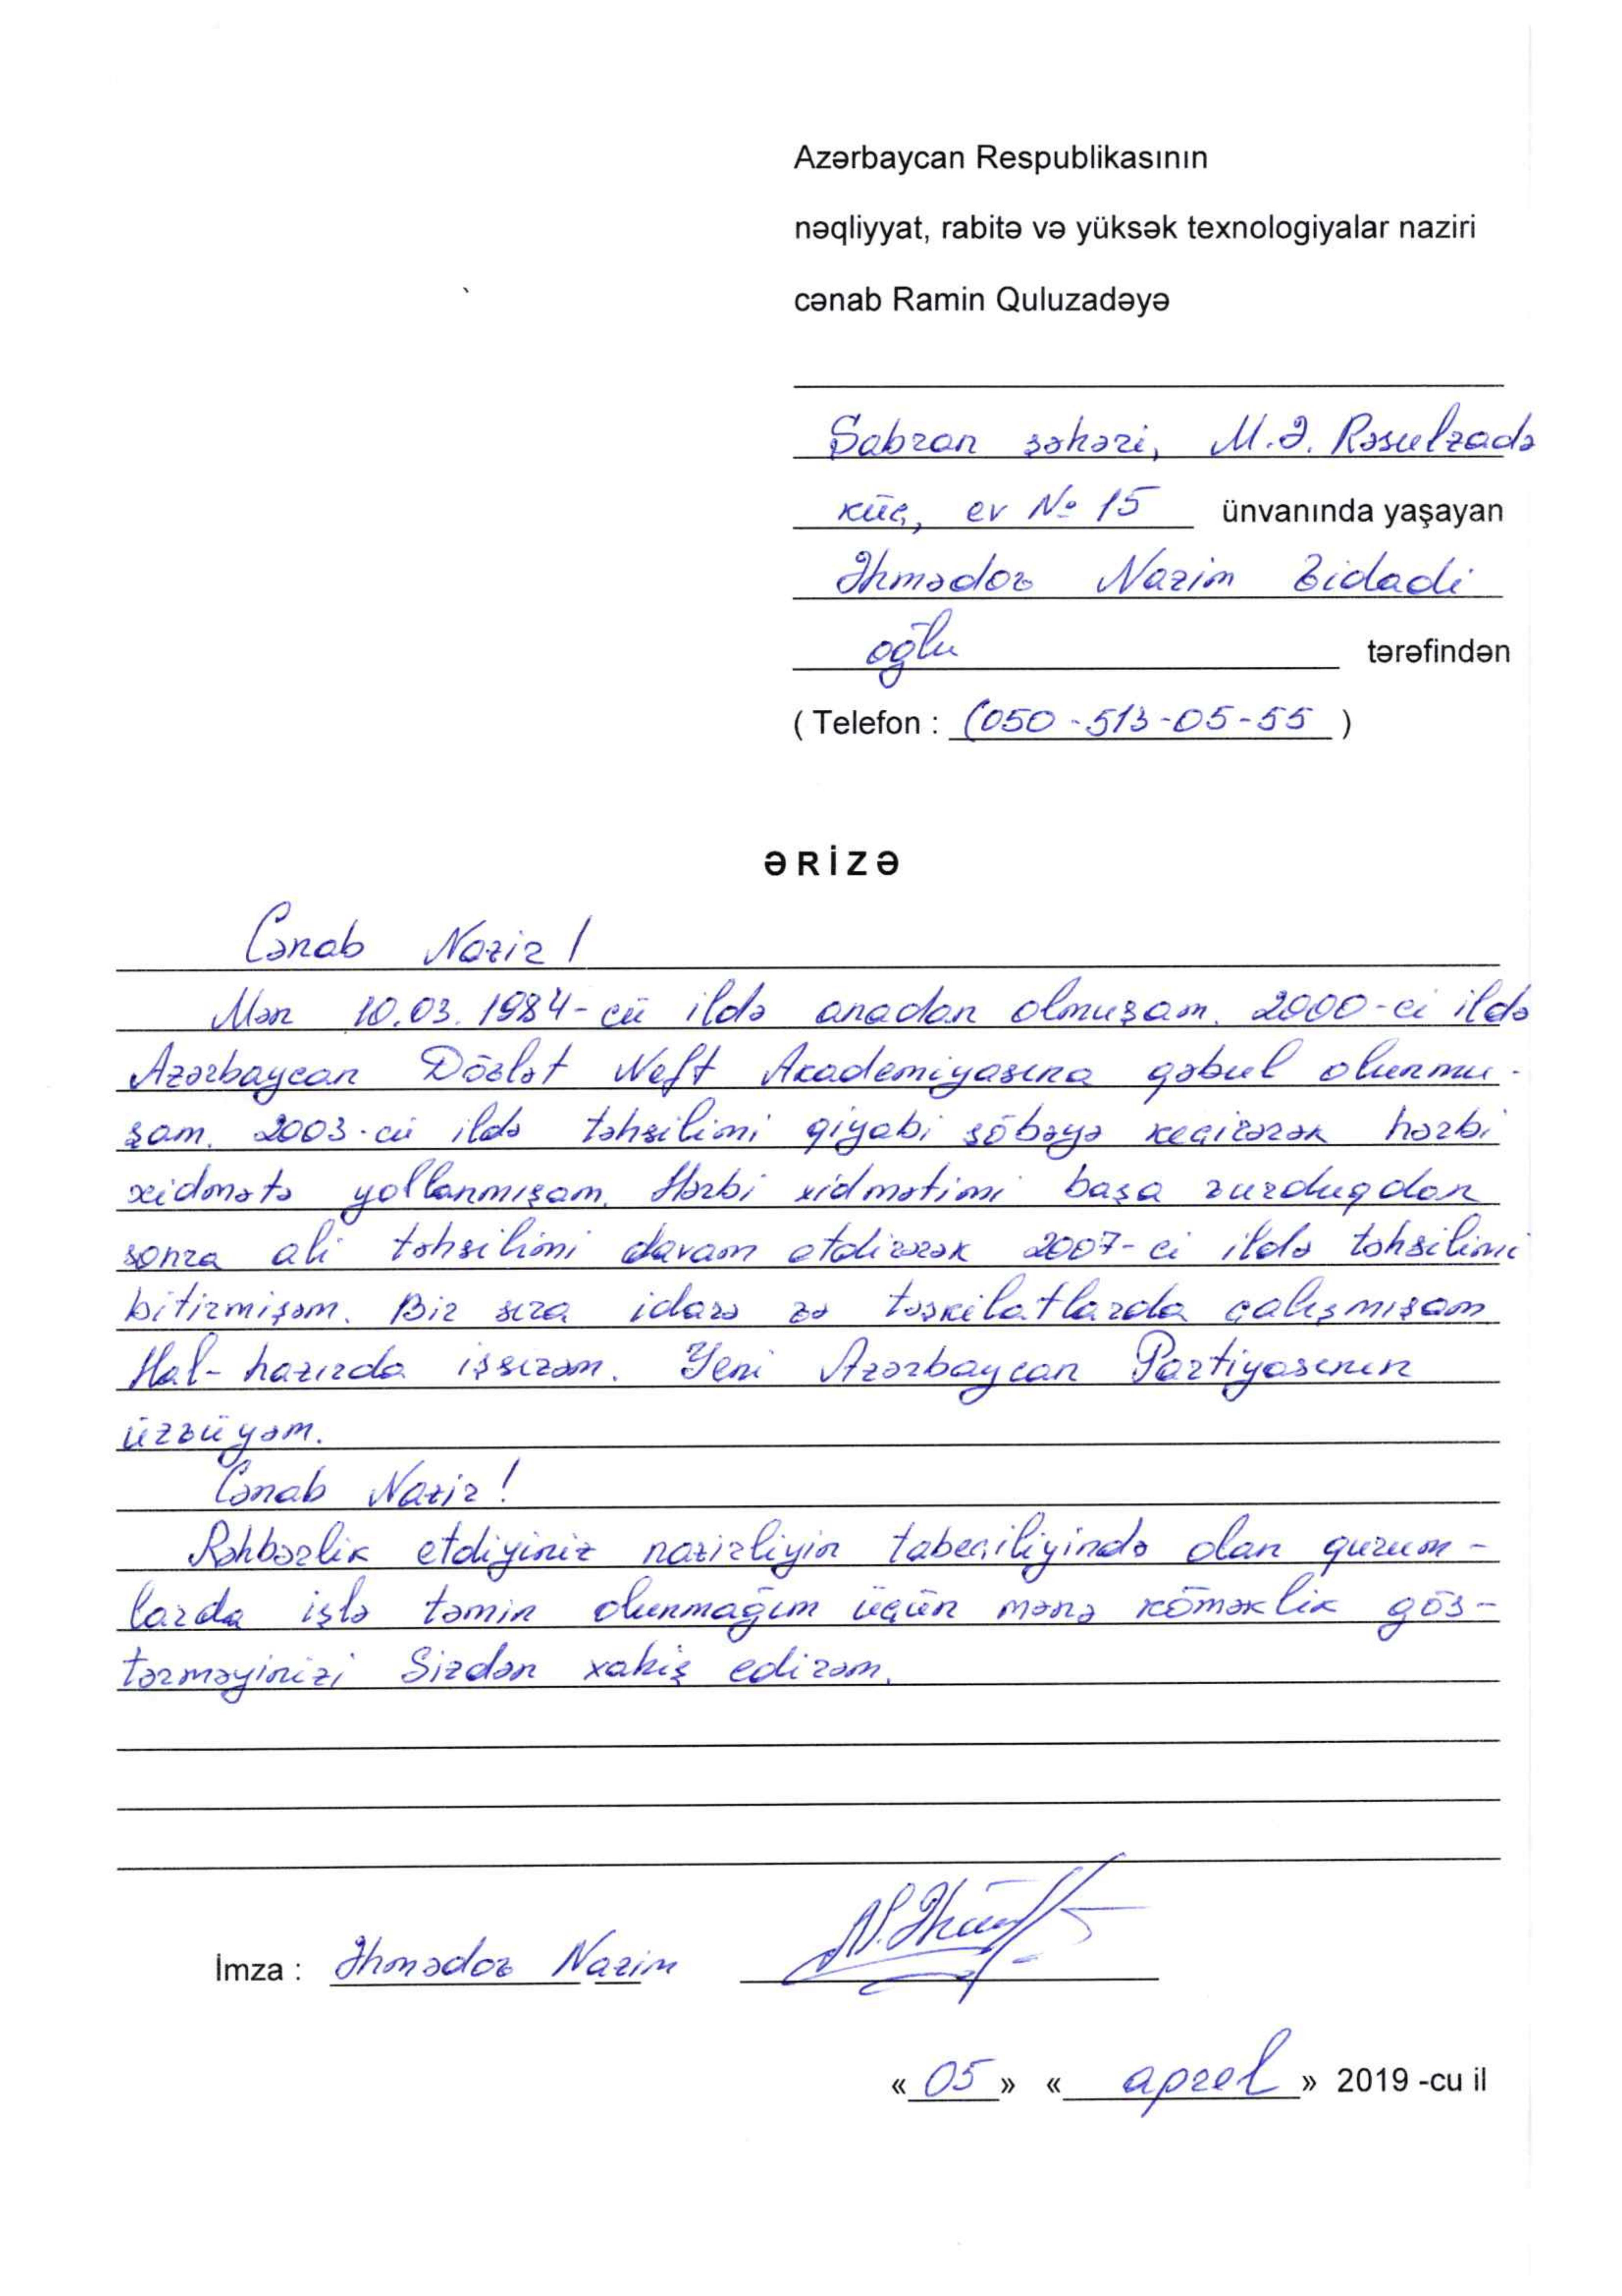 Azərbaycan Respublikasının
nəqliyyat, rabitə və yüksək texnologiyalar naziri
cənab Ramin Quluzadəyə
Şabran şəhəri, M.Ə. Rəsulzadə
küç, ev № 15 ünvanında yaşayan
Əhmədov Nazim Vidadi
oğlu tərəfindən
( Telefon : (050-513-05-55 )
ƏRİZƏ
Cənab Nazir!
Mən 10.03.1984-cü ildə anadan olmuşam. 2000-ci ildə
Azərbaycan Dövlət Neft Akademiyasına qəbul olunmu-
şam. 2003-cü ildə təhsilimi qiyabi şöbəyə keçirərək hərbi
xidmətə yollanmışam. Hərbi xidmətimi başa vurduqdan
sonra ali təhsilimi davam etdirərək 2007-ci ildə təhsilimi
bitirmişəm. Bir sıra idarə və təşkilatlarda çalışmışam
Hal-hazırda işsizəm. Yeni Azərbaycan Partiyasının
üzvüyəm.
Cənab Nazir!
Rəhbərlik etdiyiniz nazirliyin tabeçiliyində olan qurum-
larda işlə təmin olunmağım üçün mənə köməklik gös-
tərməyinizi Sizdən xahiş edirəm.
İmza : Əhmədov Nazim
«05» «aprel» 2019 -cu il